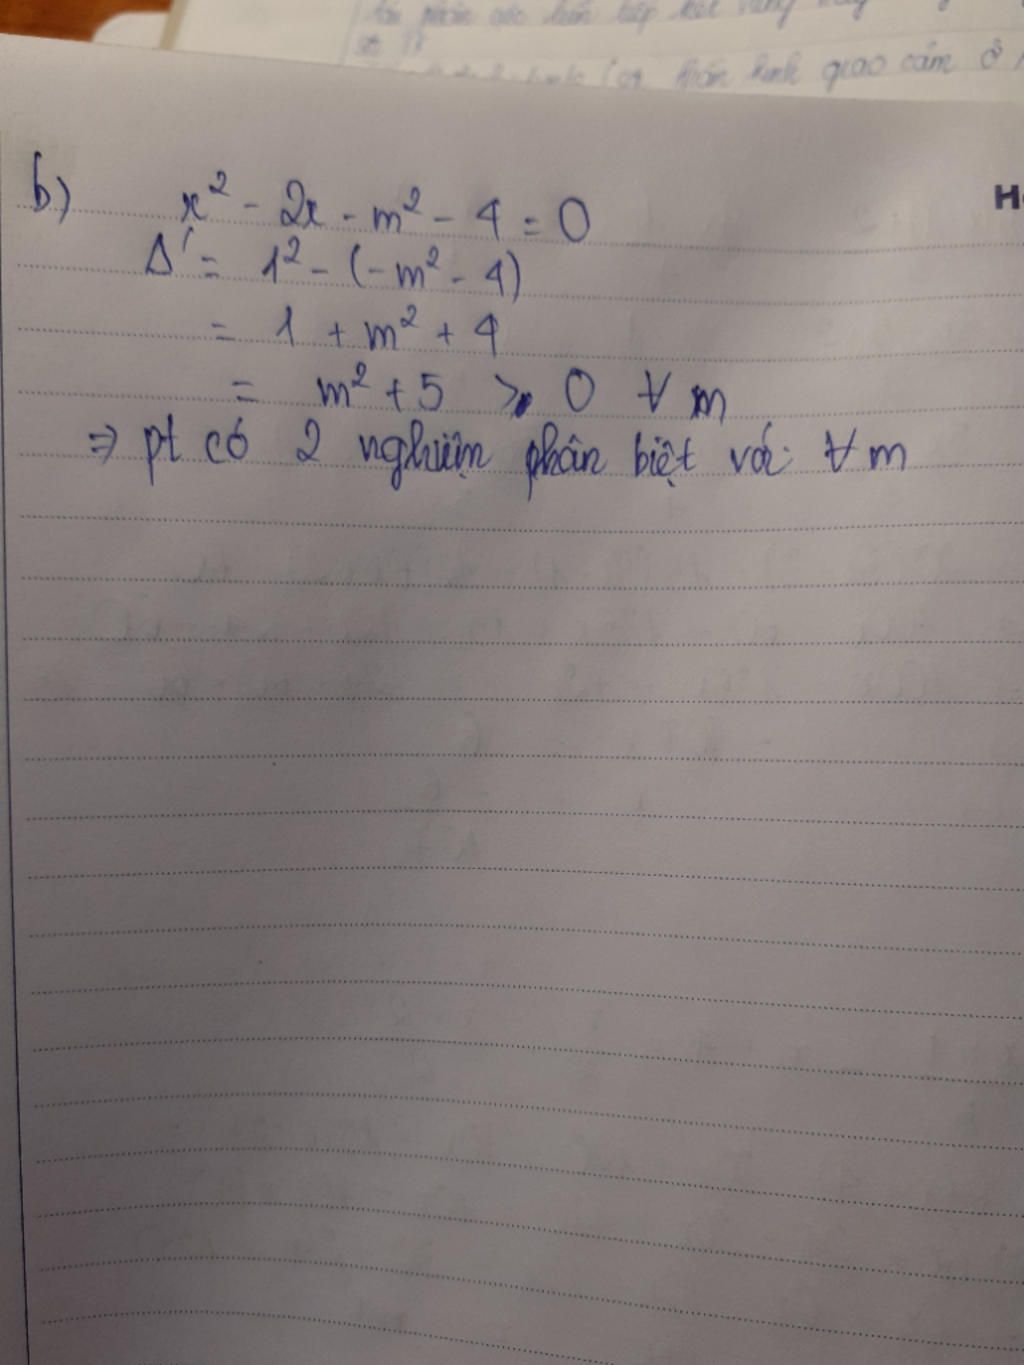 giao cảm ở
H
b) x² - 2x - m² - 4 = 0
Δ' = 1² - (-m² - 4)
= 1 + m² + 4
= m² + 5 > 0 ∀ m
⇒ pt có 2 nghiệm phân biệt với ∀ m